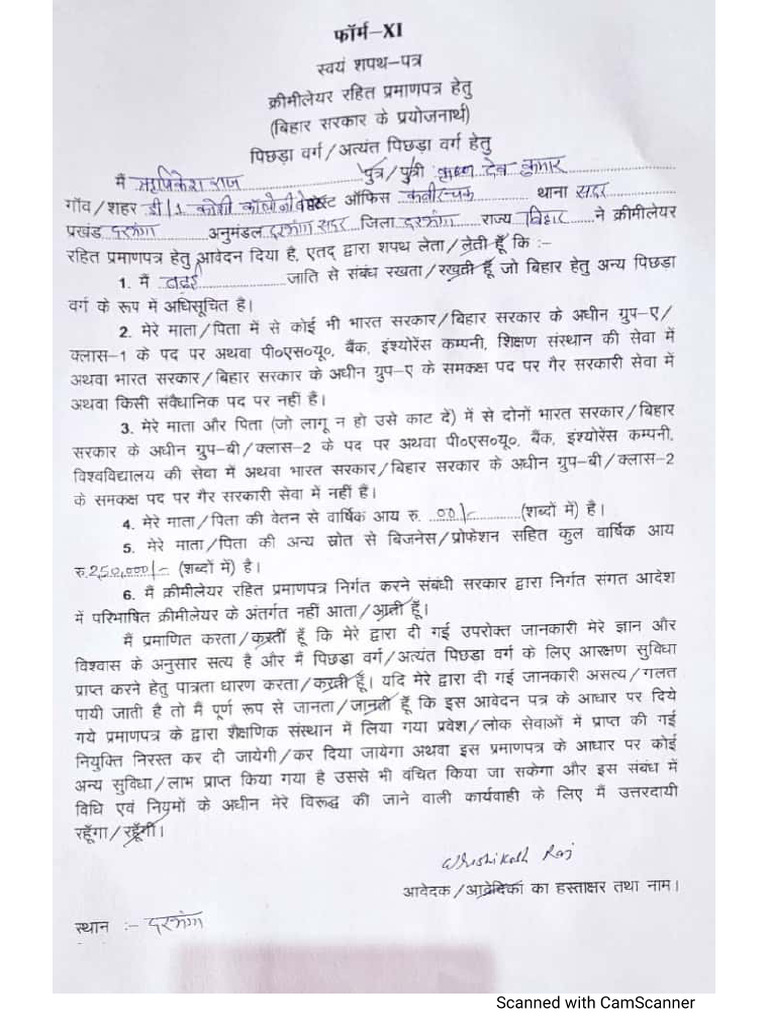 फॉर्म–XI
स्वयं शपथ–पत्र
क्रीमीलेयर रहित प्रमाणपत्र हेतु
(बिहार सरकार के प्रयोजनार्थ)
पिछड़ा वर्ग/अत्यंत पिछड़ा वर्ग हेतु
मैं ऋषिकेश राज पुत्र/पुत्री कृष्ण देव कुमार
गाँव/शहर डी/1 कोशी कॉलोनी पोस्ट ऑफिस थाना सदर
प्रखंड दरभंगा अनुमंडल दरभंगा सदर जिला दरभंगा राज्य बिहार ने क्रीमीलेयर
रहित प्रमाणपत्र हेतु आवेदन दिया है, एतद् द्वारा शपथ लेता/लेती हूँ कि :–
1. मैं बढ़ई जाति से संबंध रखता/रखती हूँ जो बिहार हेतु अन्य पिछड़ा
वर्ग के रूप में अधिसूचित है।
2. मेरे माता/पिता में से कोई भी भारत सरकार/बिहार सरकार के अधीन ग्रुप–ए/
क्लास–1 के पद पर अथवा पी०एस०यू०, बैंक, इंश्योरेंस कम्पनी, शिक्षण संस्थान की सेवा में
अथवा भारत सरकार/बिहार सरकार के अधीन ग्रुप–ए के समकक्ष पद पर गैर सरकारी सेवा में
अथवा किसी संवैधानिक पद पर नहीं है।
3. मेरे माता और पिता (जो लागू न हो उसे काट दें) में से दोनों भारत सरकार/बिहार
सरकार के अधीन ग्रुप–बी/क्लास–2 के पद पर अथवा पी०एस०यू०, बैंक, इंश्योरेंस कम्पनी,
विश्वविद्यालय की सेवा में अथवा भारत सरकार/बिहार सरकार के अधीन ग्रुप–बी/क्लास–2
के समकक्ष पद पर गैर सरकारी सेवा में नहीं है।
4. मेरे माता/पिता की वेतन से वार्षिक आय रु. 00/- (शब्दों में) है।
5. मेरे माता/पिता की अन्य स्रोत से बिजनेस/प्रोफेशन सहित कुल वार्षिक आय
रु. 250,000/- (शब्दों में) है।
6. मैं क्रीमीलेयर रहित प्रमाणपत्र निर्गत करने संबंधी सरकार द्वारा निर्गत संगत आदेश
में परिभाषित क्रीमीलेयर के अंतर्गत नहीं आता/आती हूँ।
मैं प्रमाणित करता/करती हूँ कि मेरे द्वारा दी गई उपरोक्त जानकारी मेरे ज्ञान और
विश्वास के अनुसार सत्य है और मैं पिछड़ा वर्ग/अत्यंत पिछड़ा वर्ग के लिए आरक्षण सुविधा
प्राप्त करने हेतु पात्रता धारण करता/करती हूँ। यदि मेरे द्वारा दी गई जानकारी असत्य/गलत
पायी जाती है तो मैं पूर्ण रूप से जानता/जानती हूँ कि इस आवेदन पत्र के आधार पर दिये
गये प्रमाणपत्र के द्वारा शैक्षणिक संस्थान में लिया गया प्रवेश/लोक सेवाओं में प्राप्त की गई
नियुक्ति निरस्त कर दी जायेगी/कर दिया जायेगा अथवा इस प्रमाणपत्र के आधार पर कोई
अन्य सुविधा/लाभ प्राप्त किया गया है उससे भी वंचित किया जा सकेगा और इस संबंध में
विधि एवं नियमों के अधीन मेरे विरूद्ध की जाने वाली कार्यवाही के लिए मैं उत्तरदायी
रहूँगा/रहूँगी।
Raj
आवेदक/आवेदिका का हस्ताक्षर तथा नाम।
स्थान :- दरभंगा
Scanned with CamScanner